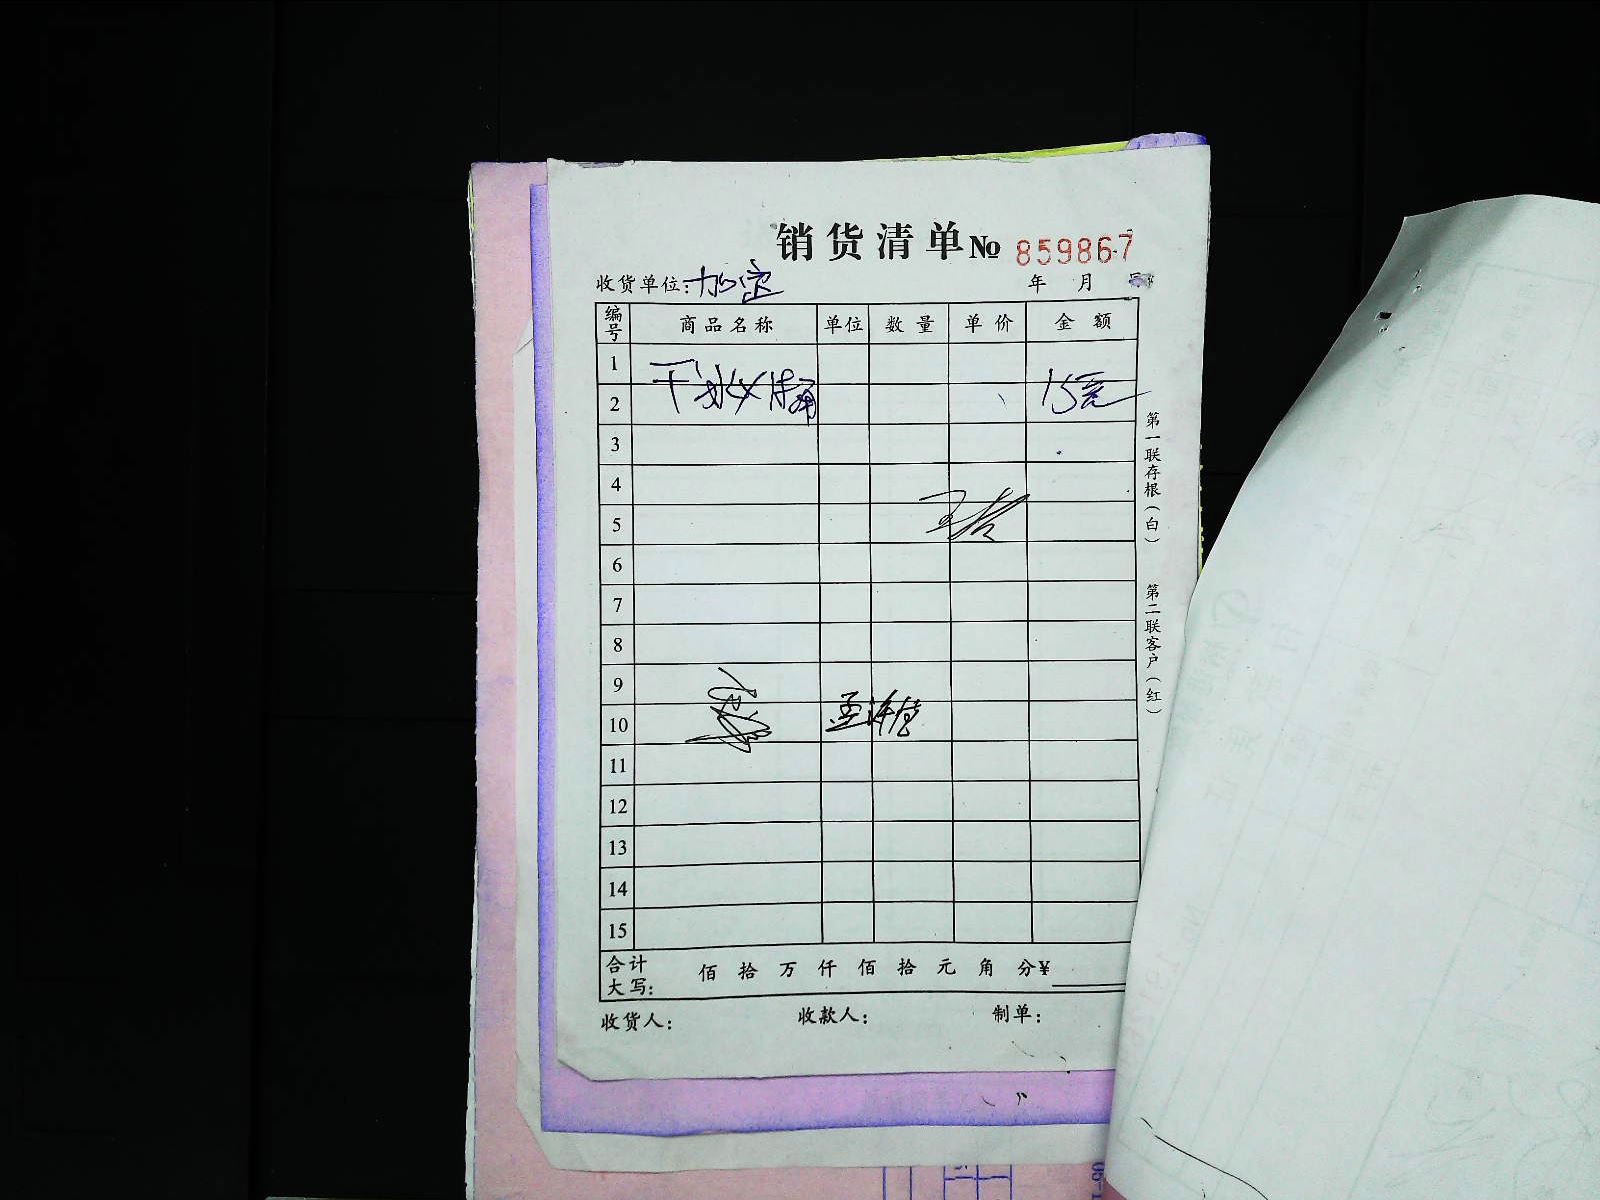 销货清单№ 859867
收货单位:
年 月
编号 商品名称 单位 数量 单价 金额
1
2 15元
3
4
5
6
7
8
9
10
11
12
13
14
15
合计大写: 佰 拾 万 仟 佰 拾 元 角 分¥
收货人: 收款人: 制单:
第一联存根(白) 第二联客户(红)